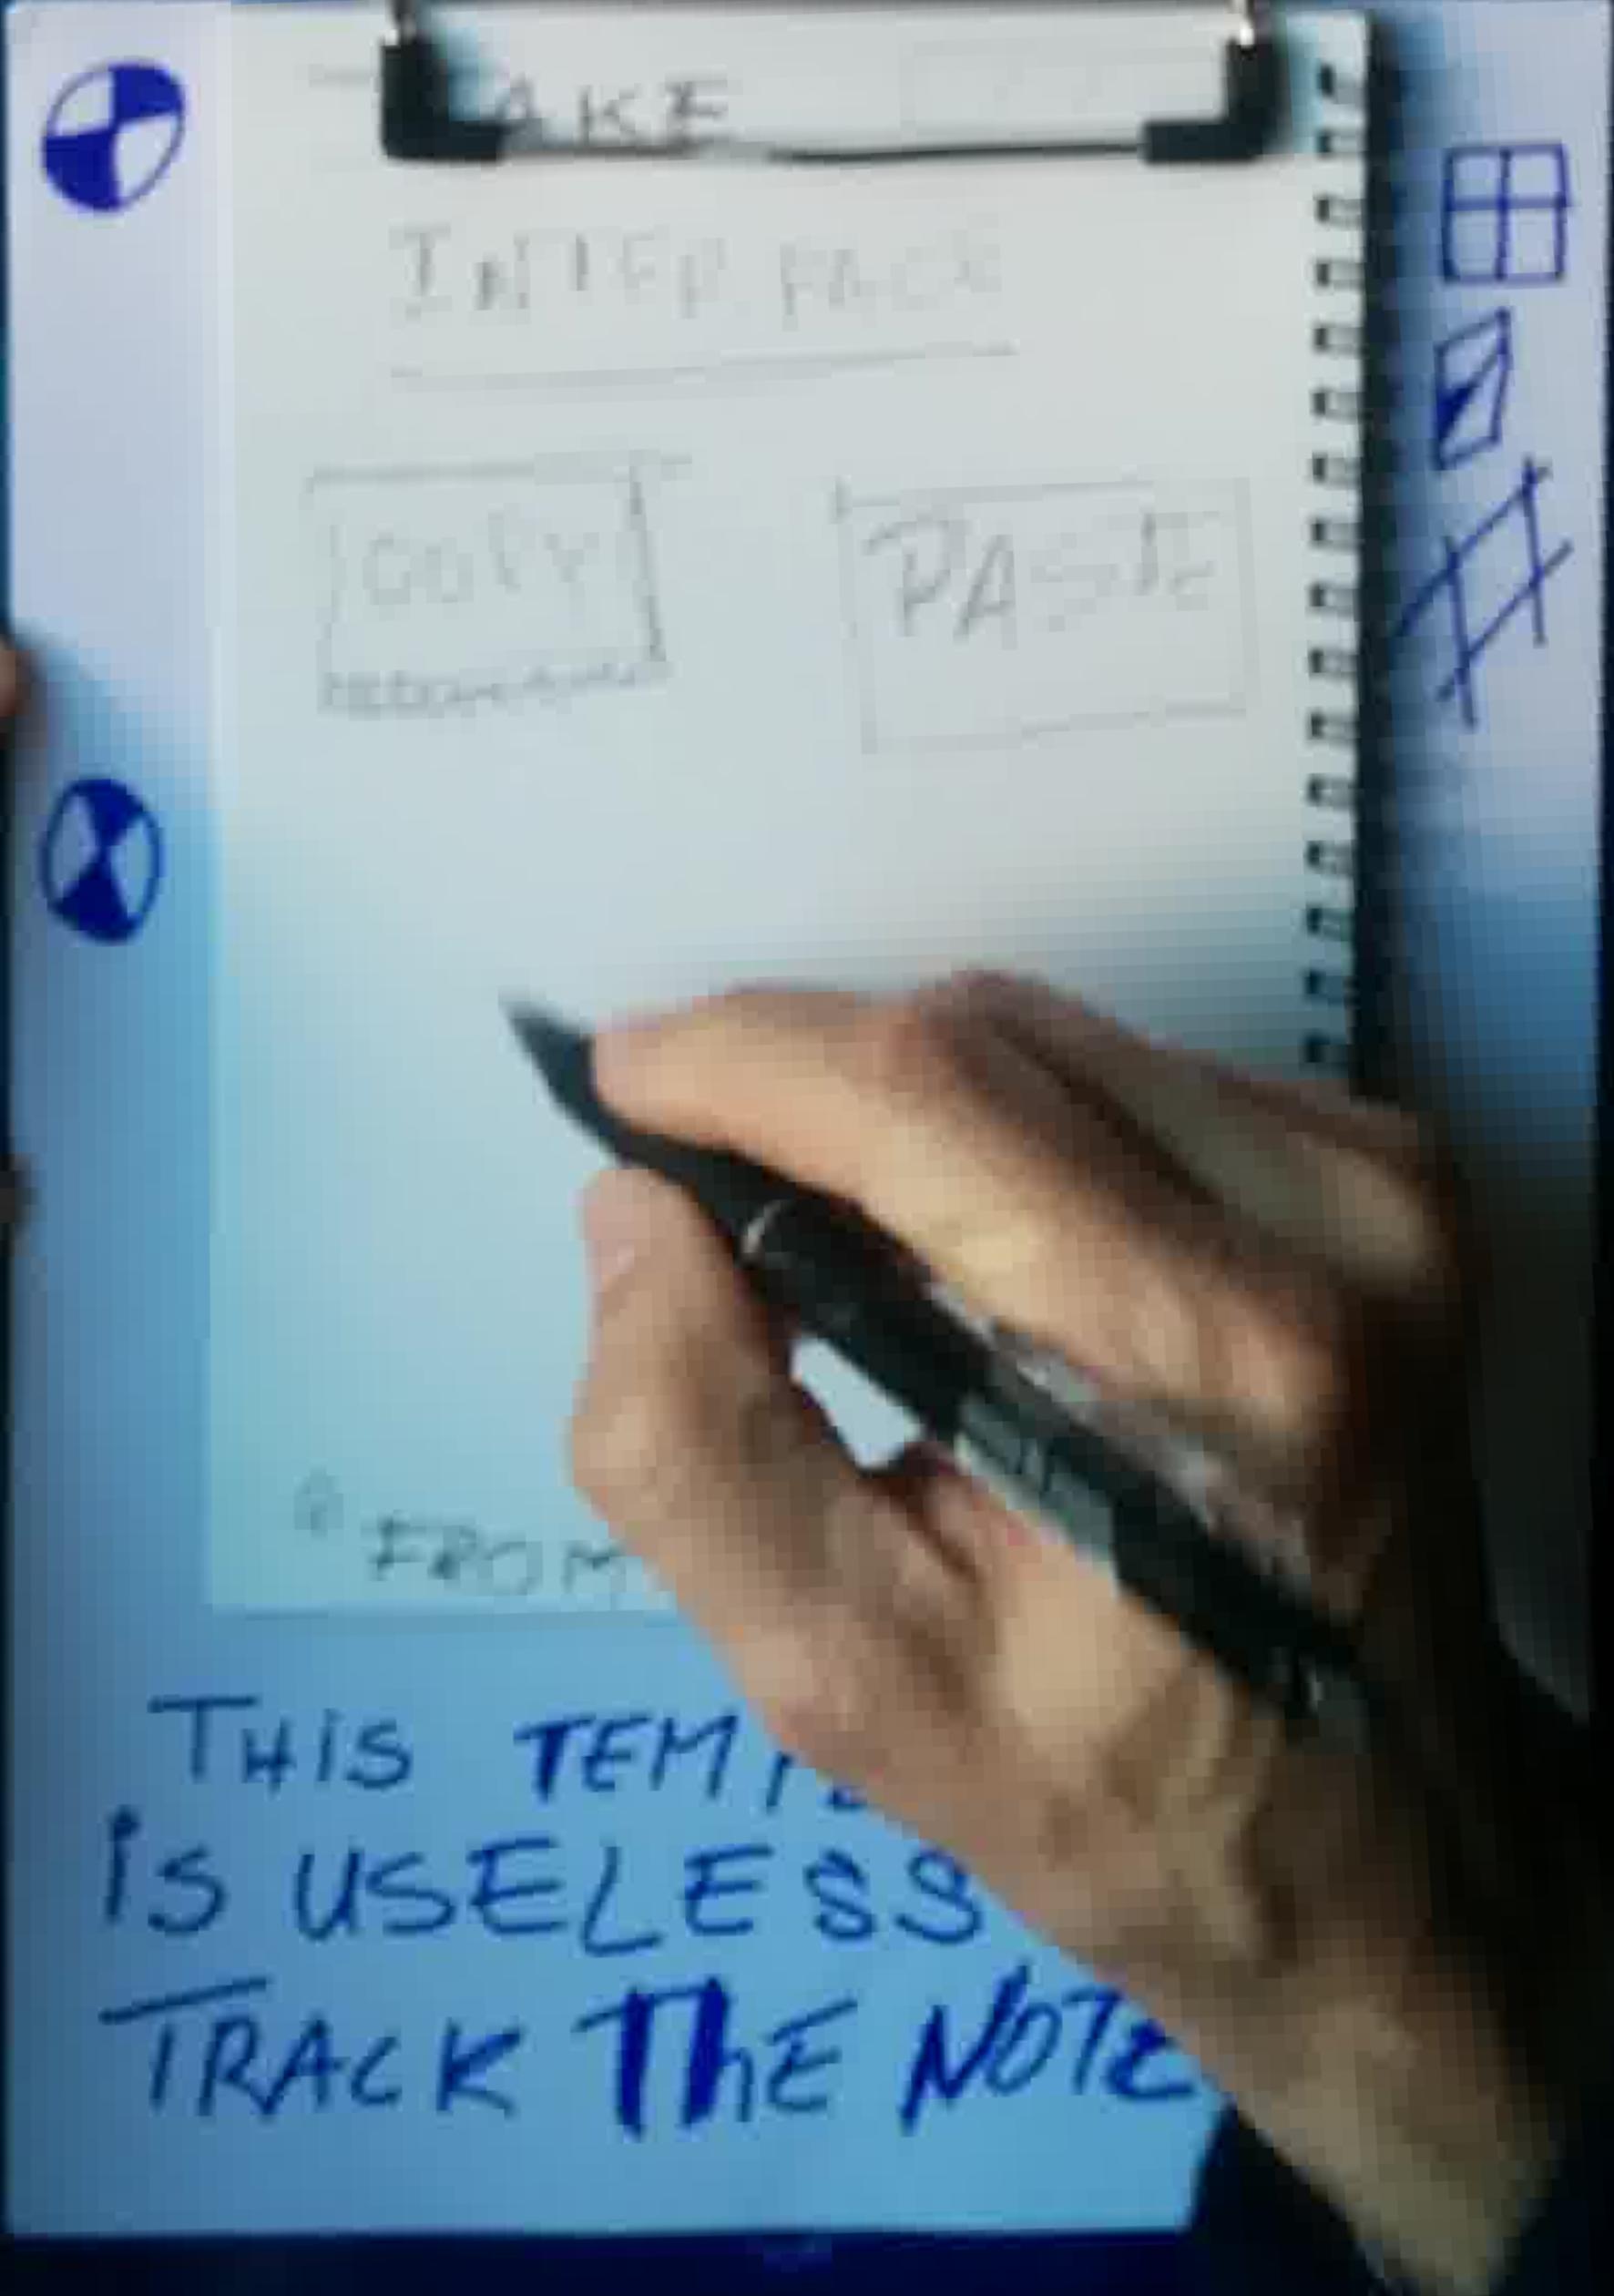 AKE
INTERFACE
COPY PASTE
FROM
THIS
IS USELESS
TRACK THE NOTE